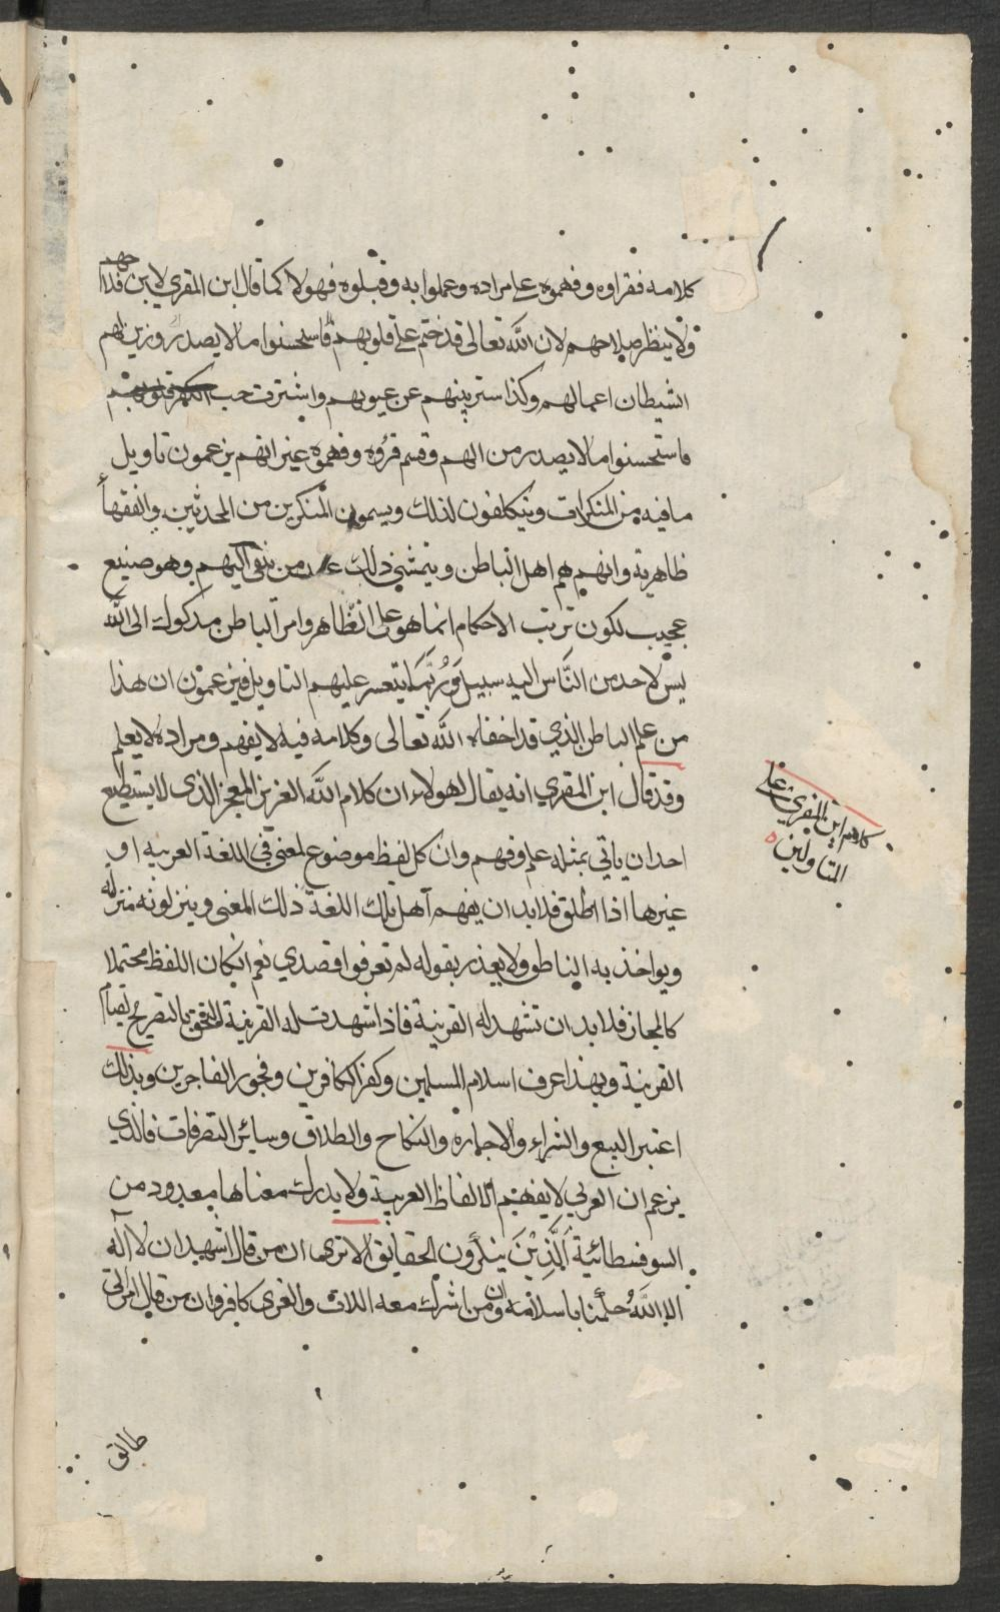 كلامه فقراوه وفهموه على مراده وعملوا به وقبلوه فهولا كما قال ابن المقري لا ينفذ فلاحهم
ولا ينظر صلاحهم لان الله تعالى قد ختم على قلوبهم فاستحسنوا مالا يصدر وزين لهم
الشيطان اعمالهم وكذا ستر بينهم عن عيوبهم واشتربت حب الكفر قلوبهم
فاستحسنوا مالا يصدر من وقسم قروه وفهموه غير انهم يزعمون تاويل
مافيه من المنكرات ويتكلفون لذلك ويسمون المنكرين من المحدثين والفقهأ
ظاهرية وانهم هم اهل الباطن ويتمشي ذلك على من اليهم وهو صنيع
عجيب لكون ترتب الاحكام انما هو على الظاهر وامر الباطن مدكول الى الله
ليس لاحد من النَّاس اليه سبيل وَرُبَّمَا يتعسر عليهم التاويل فيزعمون ان هذا
من علم الباطن الذي قد اخفاه الله تعالى وكلامه فيه لا يفهم ومراده لا يعلم
وقد قال ابن المقري انه يقال لهولاء ان كلام الله العزيز المعجز الذى لا يستطيع
احد ان ياتي بمثله علم وفهم وان كل لفظ موضوع لمعنى في اللغة العربيه او
غيرها اذا اطلق فلا بد ان يفهم اهل تلك اللغة ذلك المعنى وينزلونه منزله
ويواخذ به الناطق ولا يعذر بقوله لم تعرفوا قصدي نعم ان كان اللفظ محتملا
كالمجاز فلا بد ان تشهد له القرينة فاذا شهدت له القرينة التحق بالتصريح لقيام
القرينة وبهذا عرف اسلام المسلمين وكفر الكافرين وفجور الفاجرين وبذلك
اعتبر البيع والشراء والاجاره والنكاح والطلاق وسائر التصرفات فالذي
يزعم ان العربي لا يفهم الالفاظ العربية ولا يدرك معناها معدود من
السوفسطائية الَّذِيْنَ ينكرون الحقايق الا ترى ان من قال اشهد ان لا اله
الا الله حكمنا باسلامه وان من اشرك معه اللات والعزى كافر وان من قال امراتي
طالق
كلام ابن المقري على
التاويلين